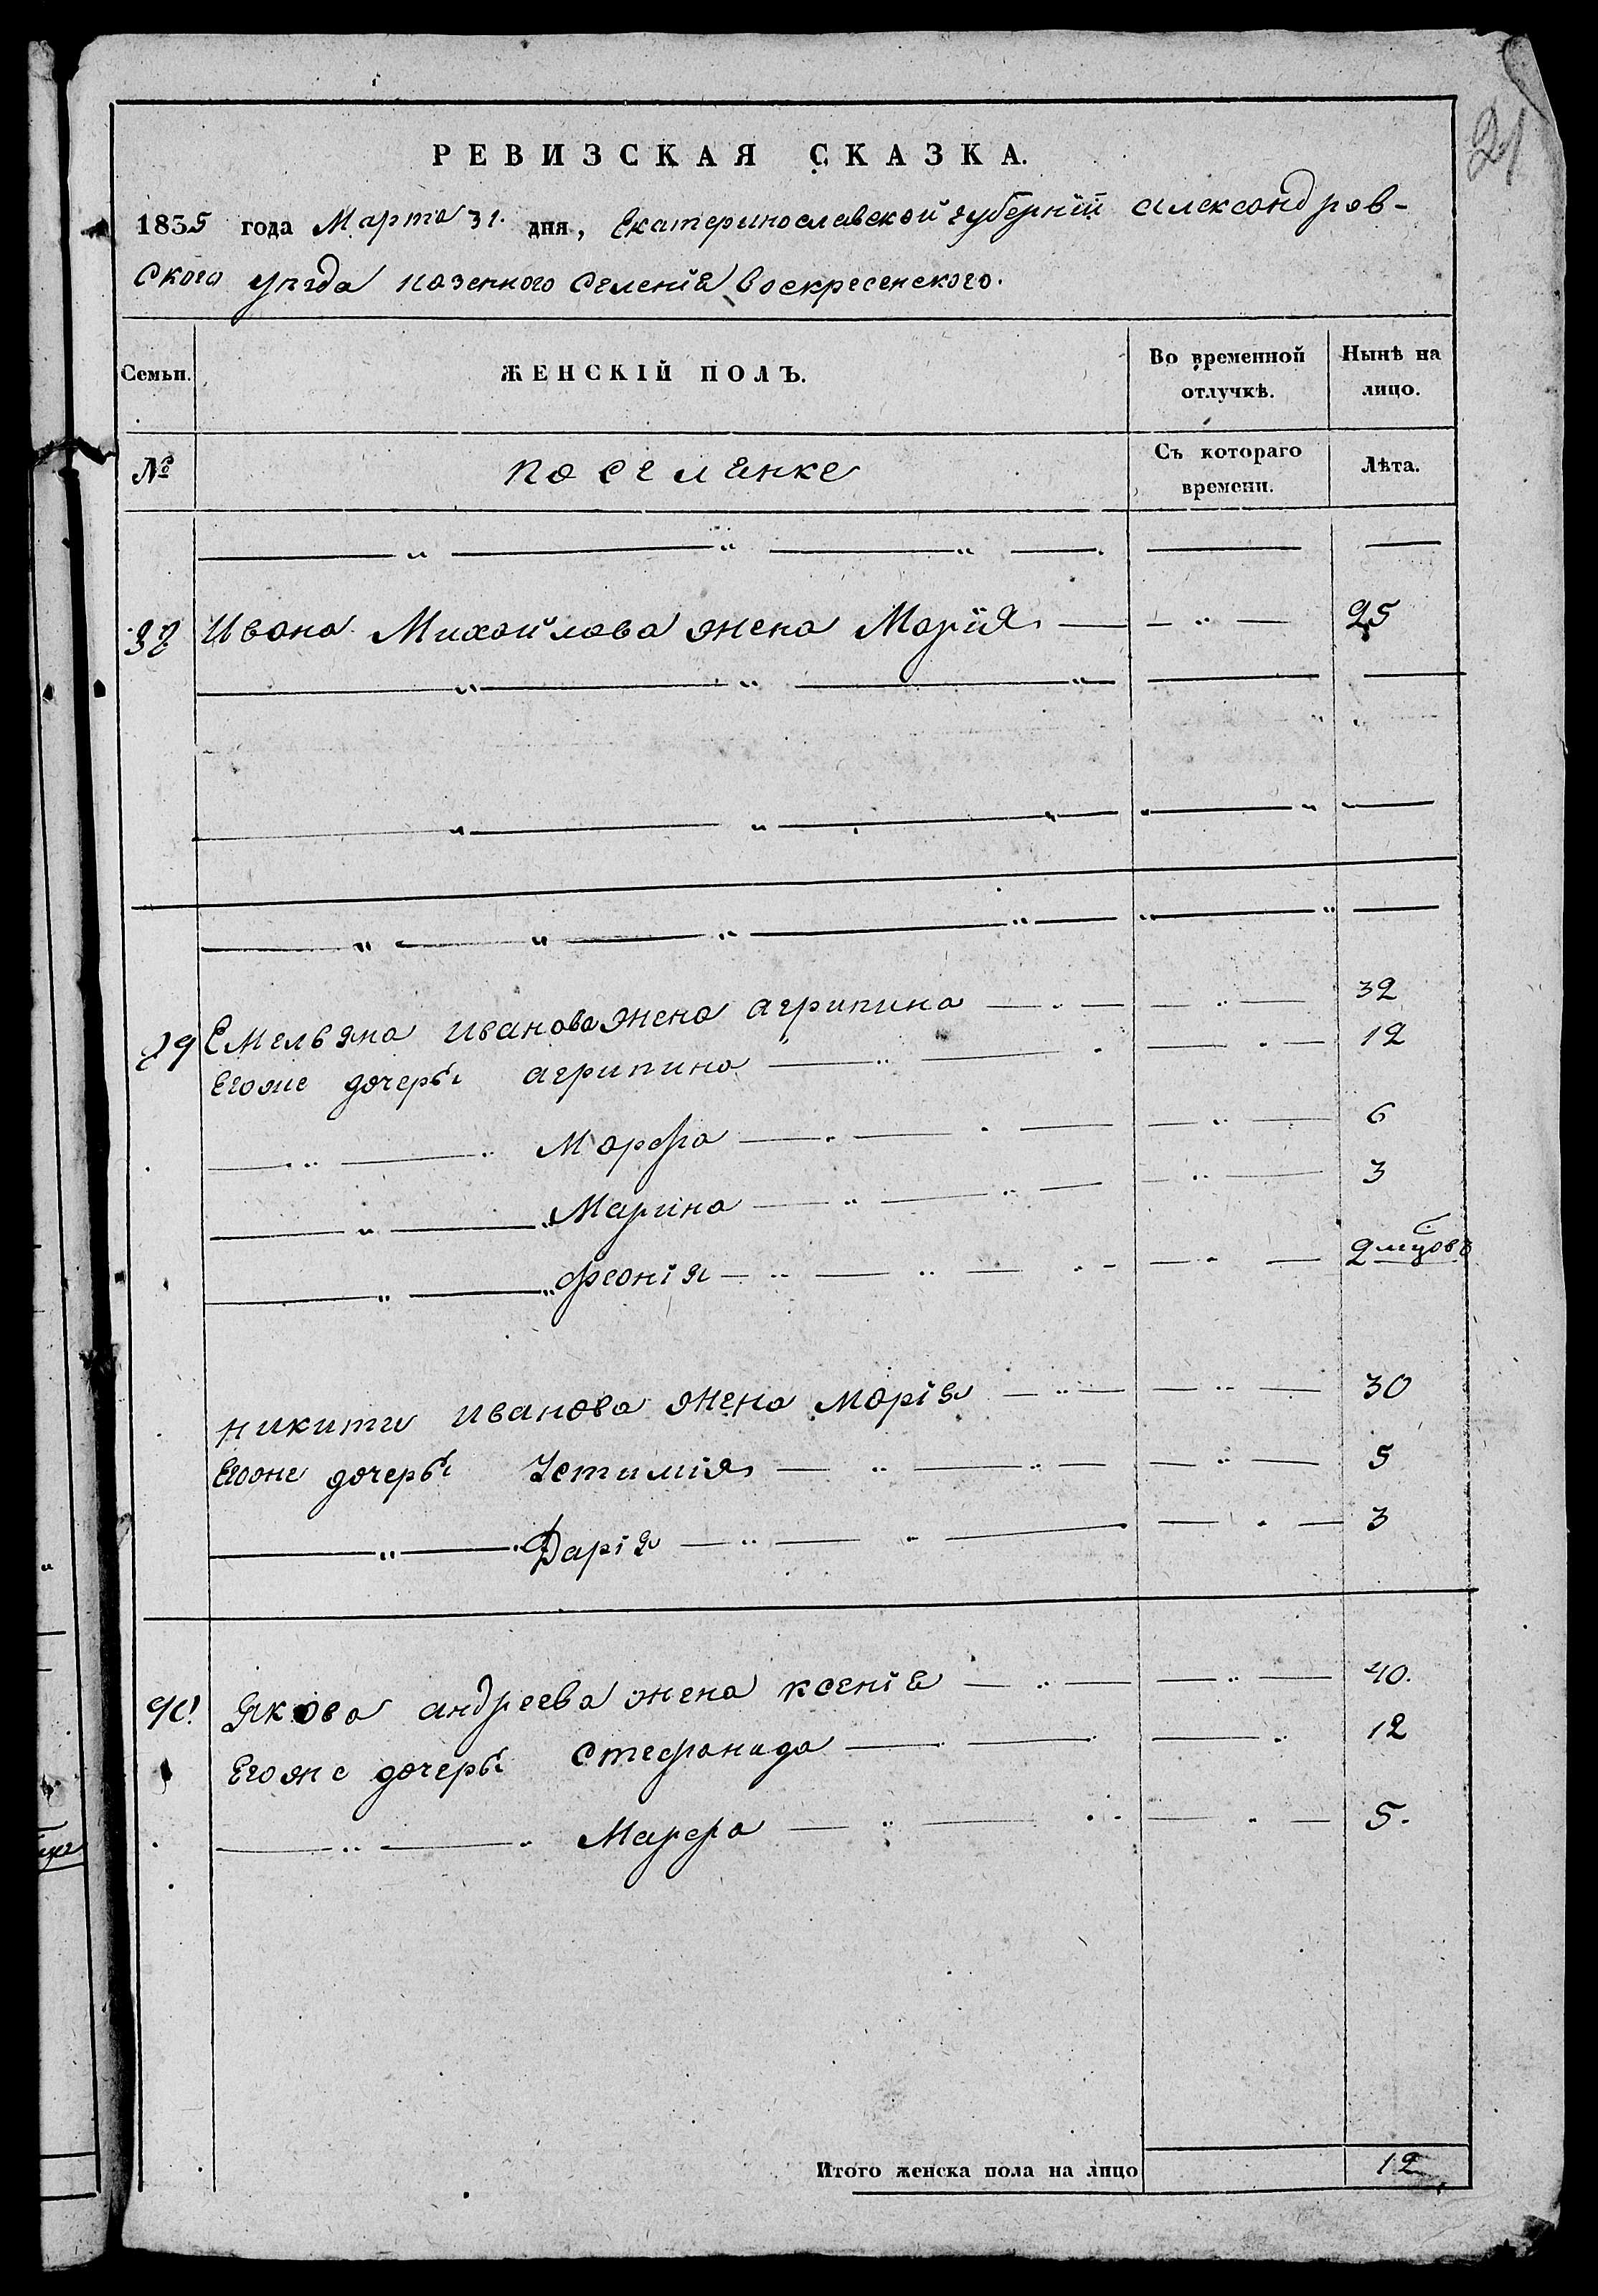 21
РЕВИЗСКАЯ СКАЗКА.
1835 года Марта 31. дня, Екатеринославской губернїи александров-
ского уезда казенного селенїя воскресенского.
Семьи. ЖЕНСКІЙ ПОЛЪ. Во временной отлучкѣ. Нынѣ на лицо.
№ поселянке Съ котораго времени. Лѣта.
Ивана Михайлова жена Марїя 25
Емельяна иванова жена агрипина 32
Егоже дочеры агрипина 12
Марфа 6
Марина 3
феонїя 2 мцовъ
никиты иванова жена марїя 30
Егоже дочеры Устимїя 5
Дарїя 3
90! Якова андреева жена ксенїя 40.
Егоже дочеры Стефанида 12
Марфа 5.
Итого женска пола на лицо 12